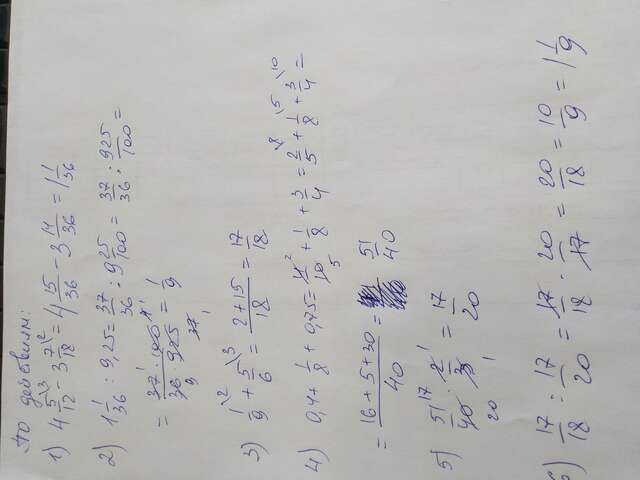 По действиям:
1) 4 5/12 \3 - 3 7/18 \2 = 4 15/36 - 3 14/36 = 1 1/36
2) 1 1/36 : 9,25 = 37/36 : 9 25/100 = 37/36 : 925/100 =
= 37 · 100 / 36 · 925 = 1/9
3) 1/9 \2 + 5/6 \3 = 2+15/18 = 17/18
4) 0,4 + 1/8 + 0,75 = 4/10 + 1/8 + 3/4 = 2/5 \8 + 1/8 \5 + 3/4 \10 =
= 16+5+30/40 = 51/40
5) 51/40 · 2/3 = 17/20
6) 17/18 : 17/20 = 17/18 · 20/17 = 20/18 = 10/9 = 1 1/9